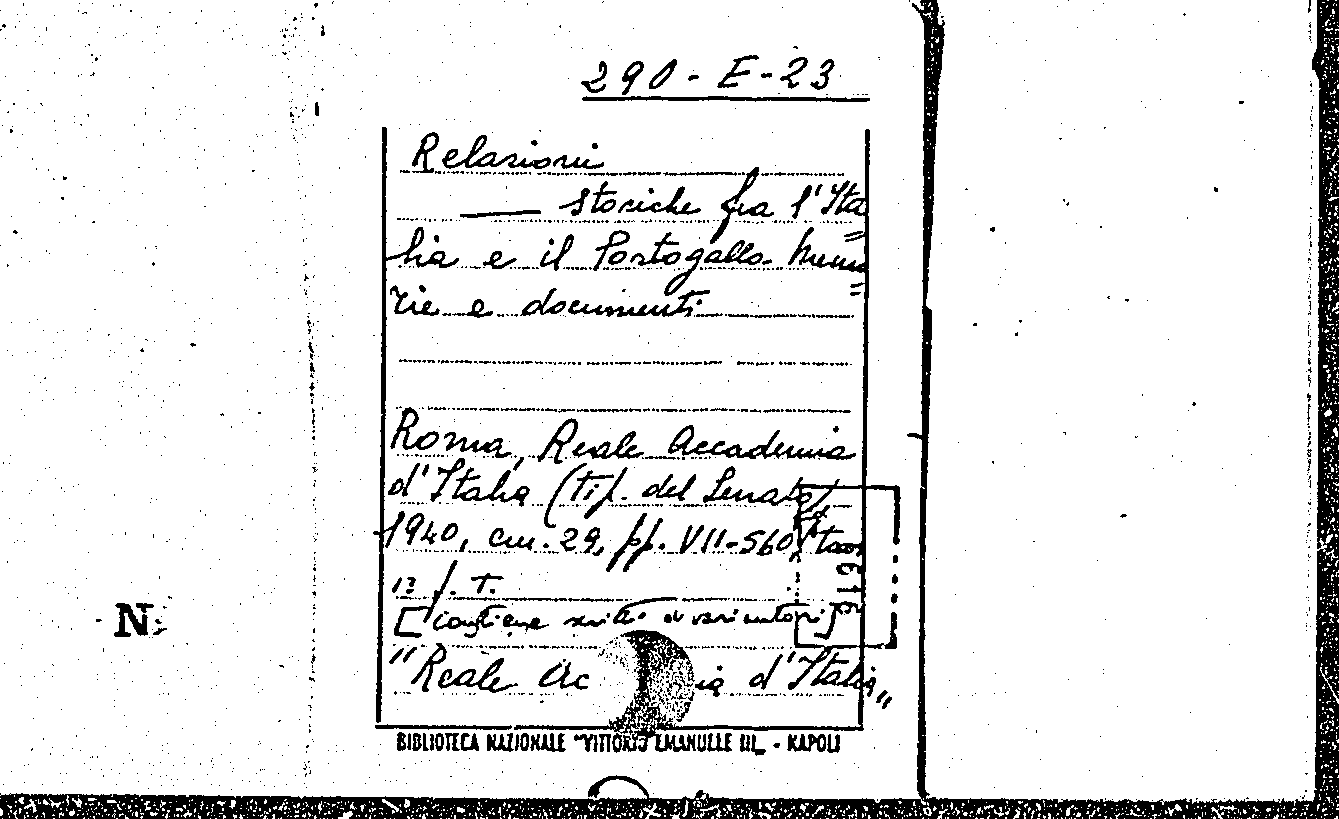 290-E-23
Relazioni
— storiche fra l'Ita=
lia e il Portogallo. Memo=
rie e documenti
Roma, Reale Accademia
d'Italia (Tip. del Senato)
1940, cm. 29, pp. VII-560
n. f. t.
[contiene scritti di vari autori]
616
N.
"Reale Ac ia d'Italia"
BIBLIOTECA NAZIONALE "VITTORIO EMANUELE III_ - NAPOLI